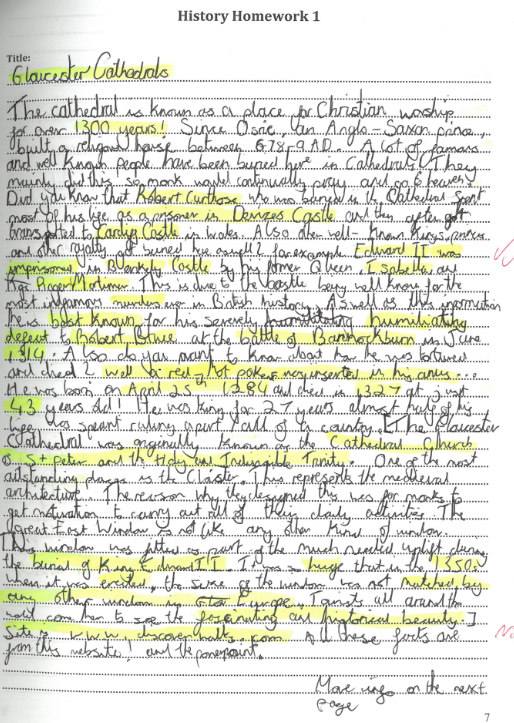 History Homework 1
Title:
Gloucester Cathedrals
The cathedral is known as a place for Christian worship
for over 1300 years! Since Osric, an Anglo-Saxon prince,
built a religious house between 678-9 AD. A lot of famous
and well known people have been buried here in Cathedrals. They
mainly did this so monk would continually pray and go to heaven.
Did you know that Robert Curthose who was buried in the Cathedral spent
most of his life as a prisoner in Devizes Castle and then after got
transported to Cardiff Castle in Wales. Also the well-known Kings, princes
and other royalty got buried here as well? for example Edward II was
imprisoned in Berkeley Castle by his former Queen, Isabella and
Roger Mortimer. This is due to the castle being well known for the
most infamous murders ever in British history. As well as this information
he is best known for his severely humiliating
defeat to Robert Bruce at the battle of Bannockburn in June
1314. Also do you want to know about how he was tortured
and died? well a red hot poker was inserted in his anus...
He was born on April 25th 1284 and died in 1327 at just
43 years old! He was king for 27 years almost half of his
life was spent ruling over all of a country. The Gloucester
Cathedral was originally known as the Cathedral Church
of St peter and the Holy and Indivisible Trinity. One of the most
outstanding places is the Cloister. This represents the medieval
architecture. The reason why they designed this was for monks to
get motivation to carry out all of their daily activities. The
great East Window is not like any other kind of window.
This window was fitted as part of the much needed uplift during
the burial of King Edward II. It was so huge that in the 1350s
when it was erected, the size of the window was not matched by
any other window in Europe. Tourists all around the
world come then to see the fascinating and historical beauty.
Site - www.discovercults.com All these facts are
from this website! and the powerpoint.
More info on the next
page
7